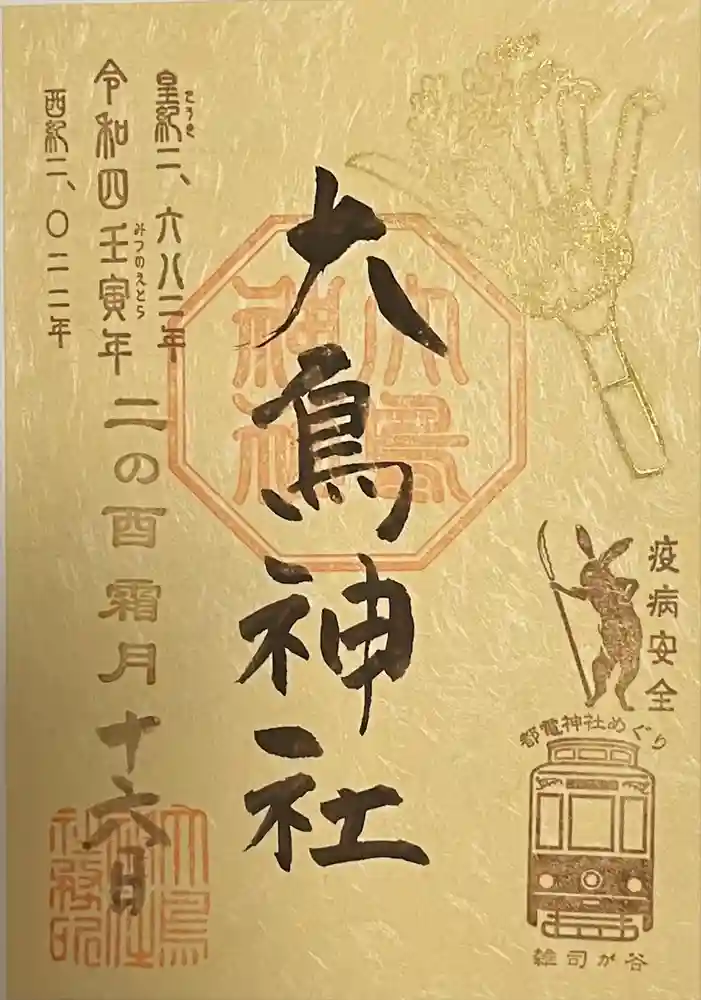 疫病安全
都電神社めぐり
雑司が谷
大鳥神社
大鳥神社
皇紀二、六八二年
こうき
令和四壬寅年
みつのえとら
二の酉霜月十六日
西紀二、〇二二年